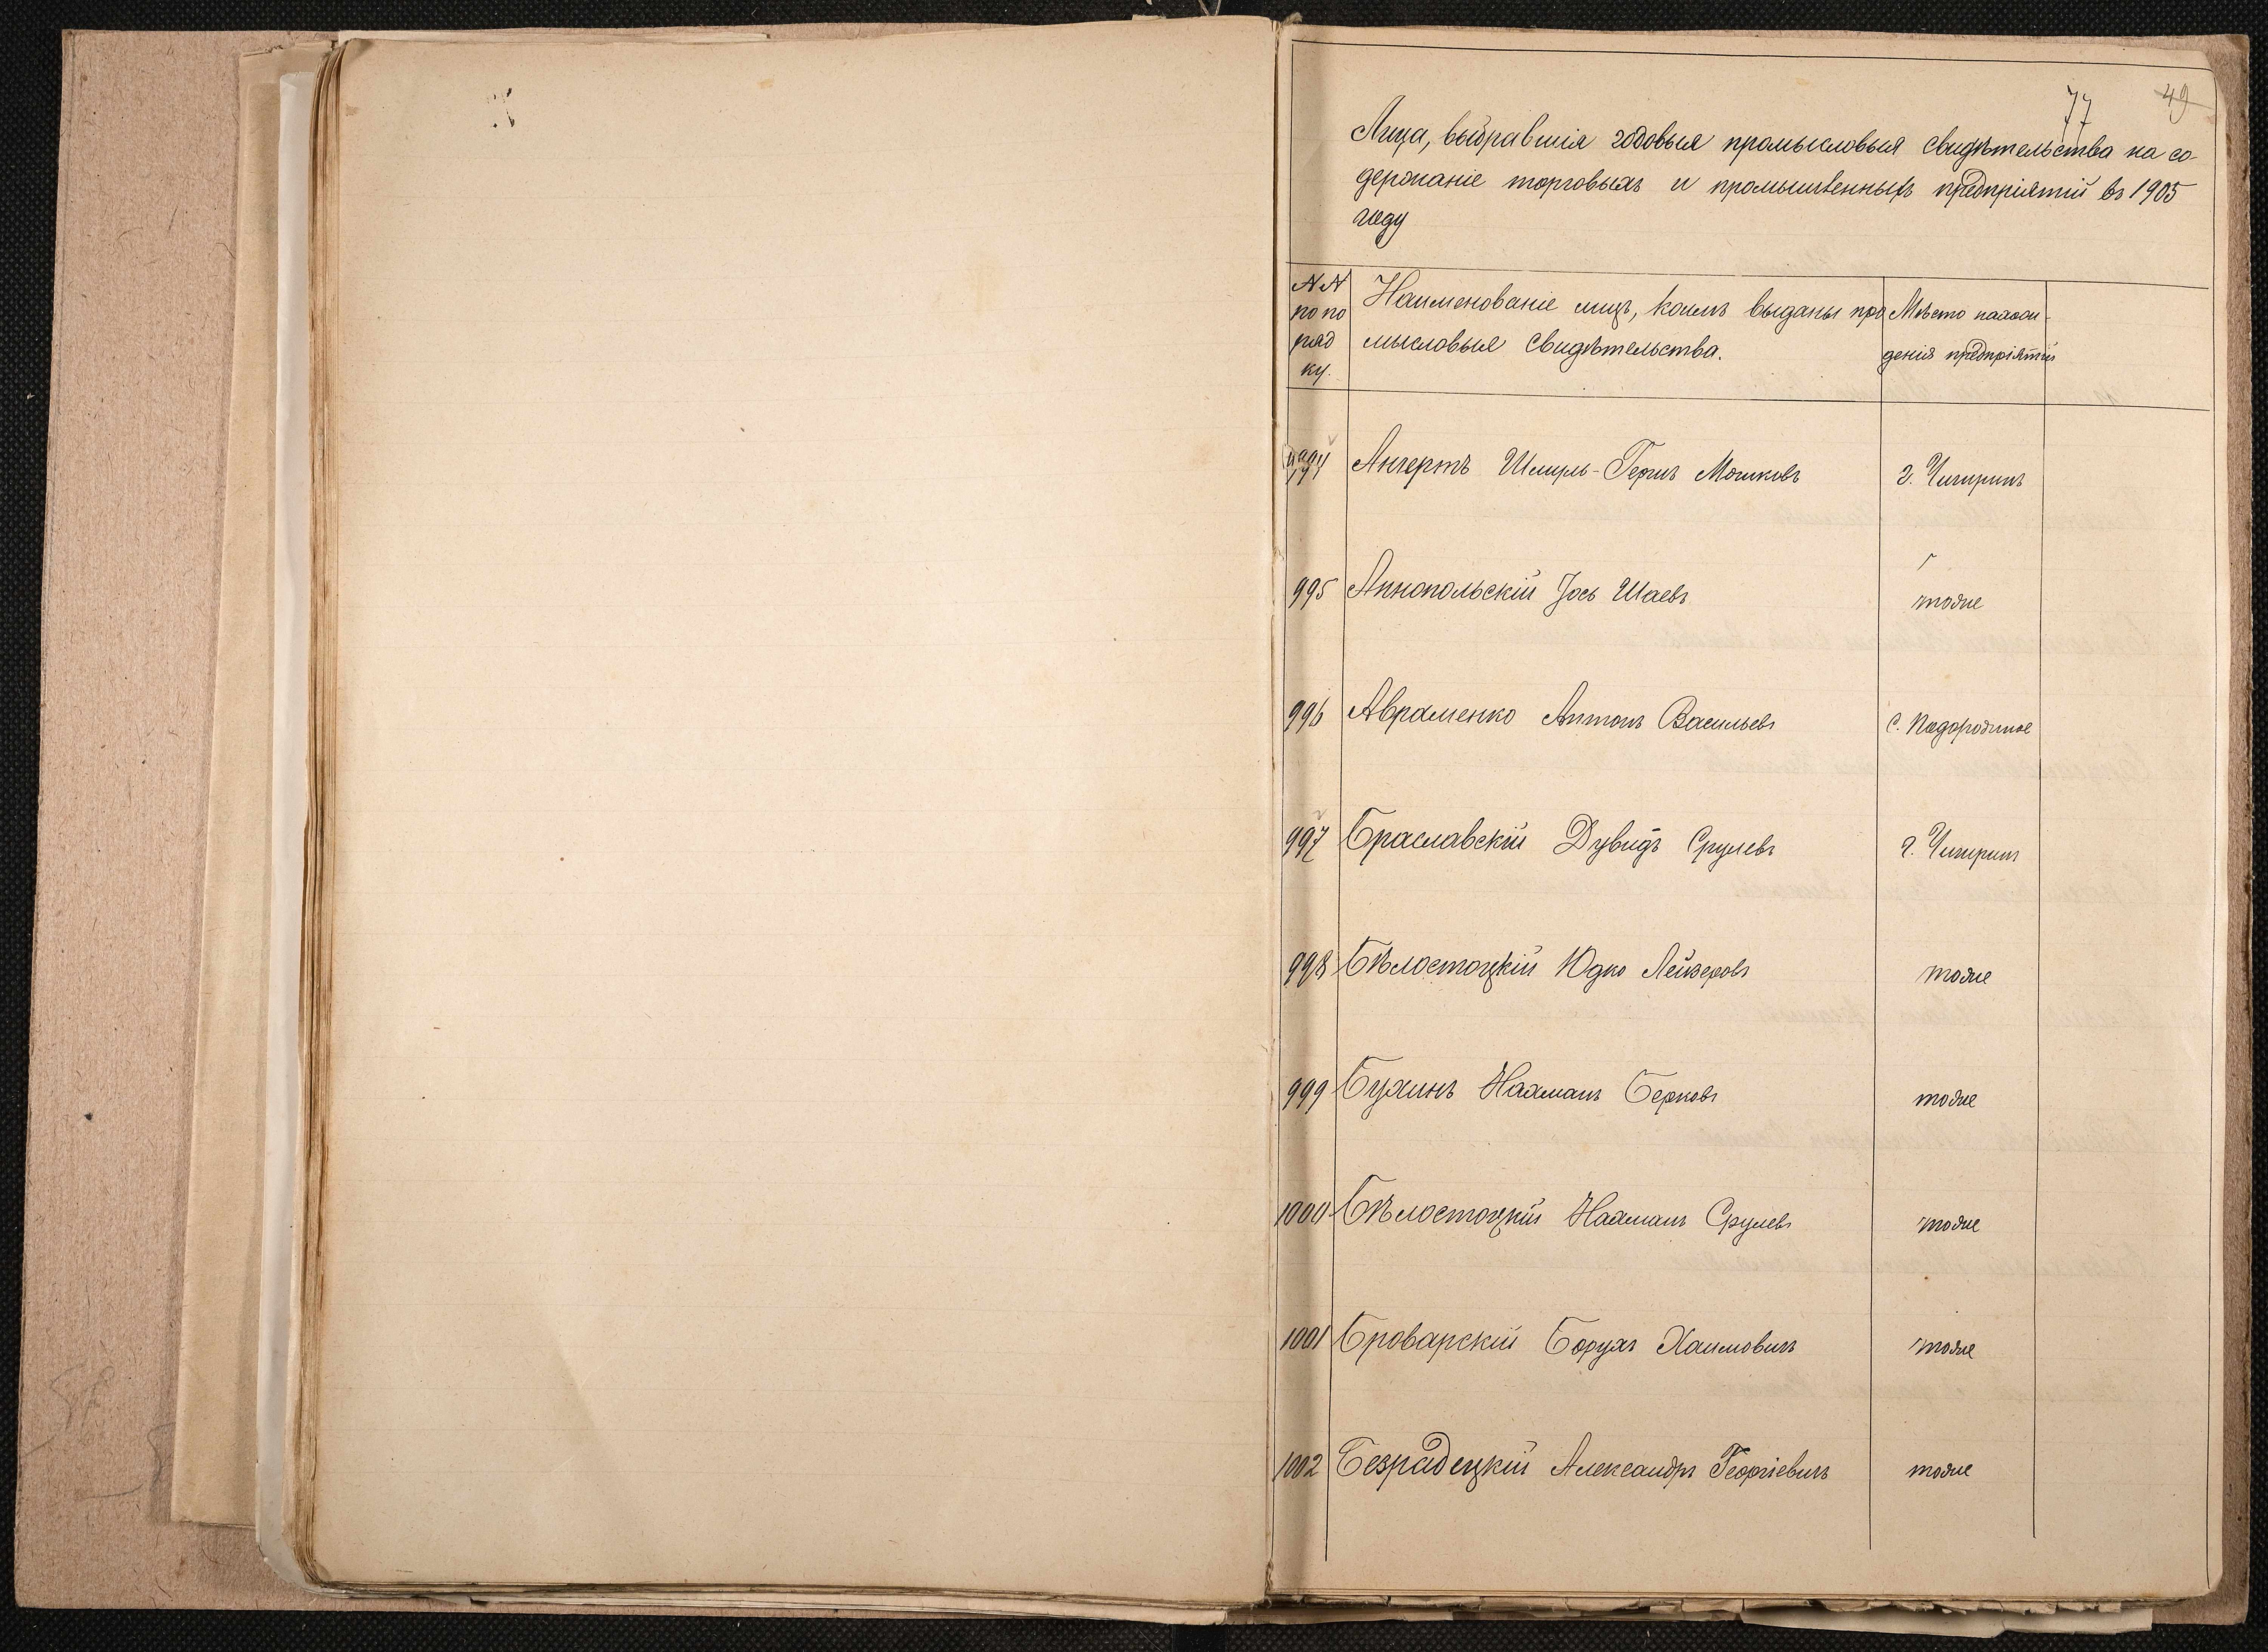 77 49
Лица, выбравшія годовыя промысловыя свидѣтельства на со-
держаніе торговыхъ и промышленныхъ предпріятій въ 1905
году
NN
по по
ряд
ку.
Наименованіе лицъ, коимъ выданы про
мысловыя свидѣтельства.
Мѣсто нахож-
денія предпріятій
994 Ангертъ Шмуль-Герш Мошковъ г. Чигиринъ
995 Аннопольскій Іось Шаевъ тоже
996 Авраменко Антонъ Васильевъ с. Подорожное
997 Браславскій Дувидъ Срулевъ г. Чигиринъ
998 Бѣлостоцкій Юдко Лейзеровъ тоже
999 Бухинъ Нахманъ Берковъ тоже
1000 Бѣлостоцкій Нахманъ Срулевъ тоже
1001 Броварскій Борухъ Хаимовичъ тоже
1002 Безрадецкій Александръ Георгіевичъ тоже